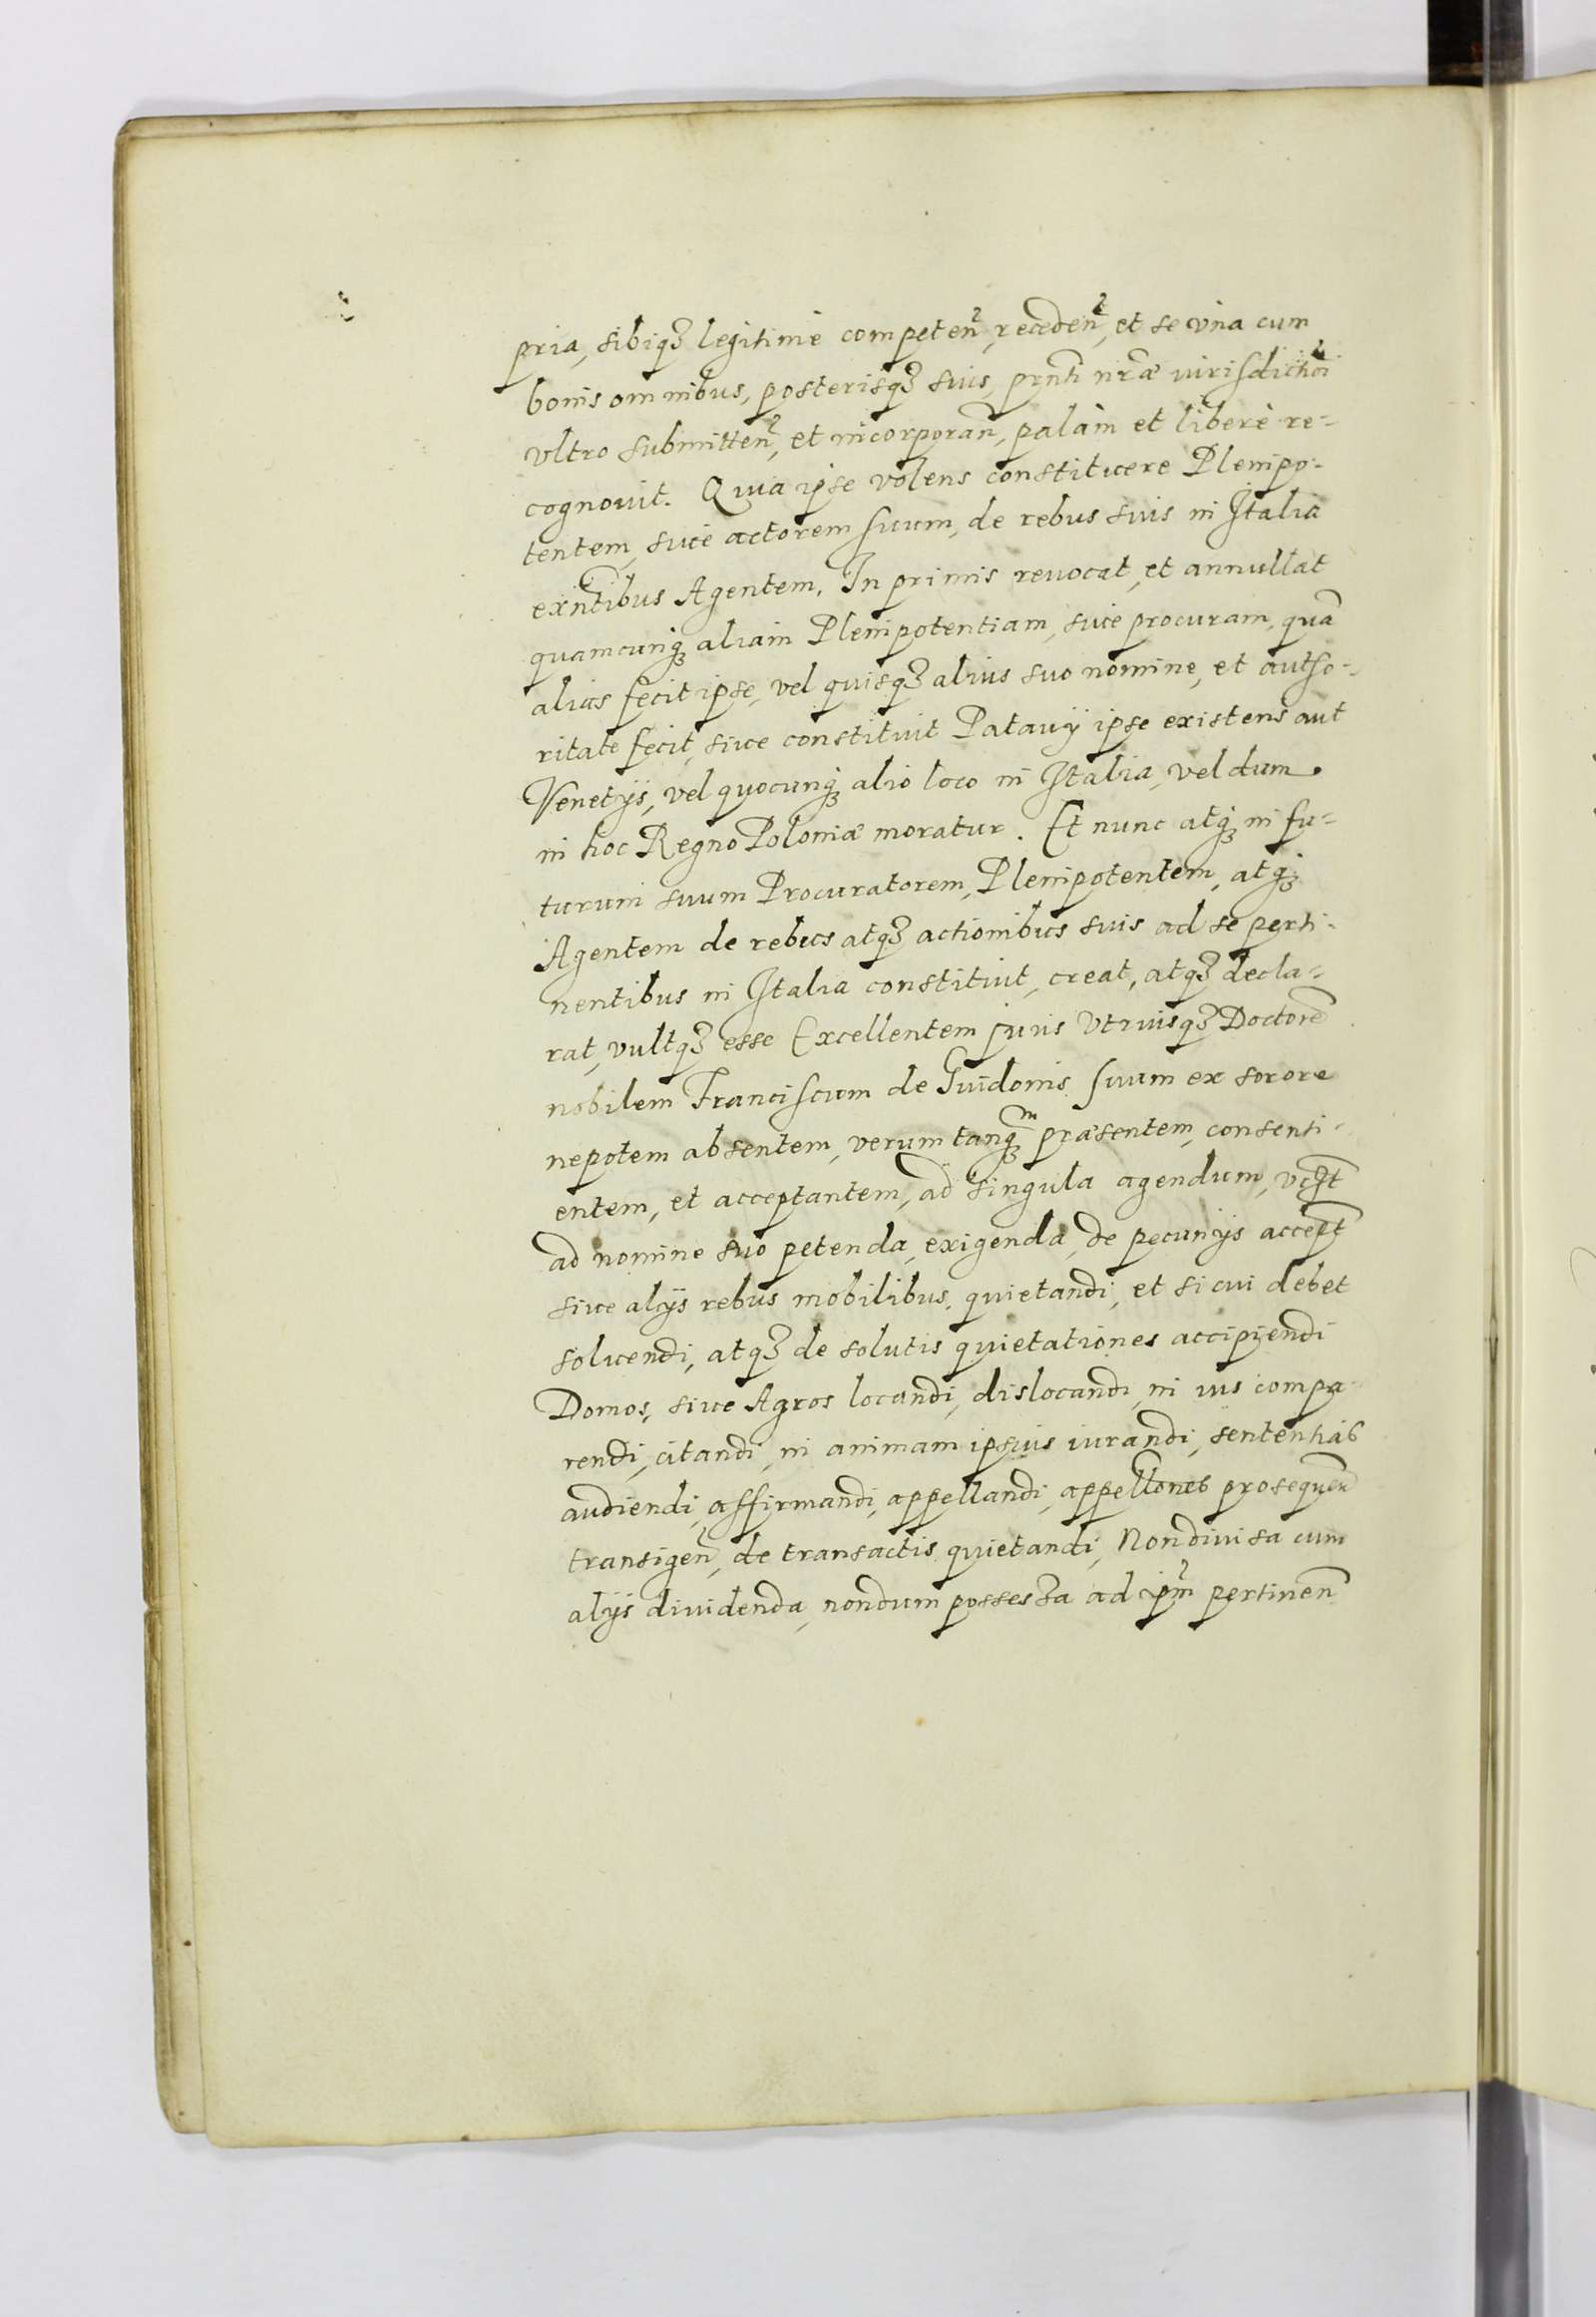 pria, sibiq̃ legitimè competen̄, receden̄, et se vna cum
bonis omnibus, posterisq̃ suis, pr̄nti nr̄æ iurisdictio͞i
vltro submitten̄, et incorporan̄, palàm et liberè re-
cognouit. Quia ipse volens constituere Plenipo-
tentem, siue actorem suum, de rebus suis in Italia
exn̄tibus Agentem. In primis reuocat, et annullat
quamcunq̃ aliam Plenipotentiam, siue procuram, quā
alias fecit ipse, vel quisq̃ alius suo nomine, et autho-
ritate fecit, siue constituit Patauij ipse existens aut
Venetijs, vel quocunq̃ alio loco in Italia, vel dum
in hoc Regno Poloniæ moratur. Et nunc atq̃ in fu-
turum suum Procuratorem, Plenipotentem, atq̃
Agentem de rebus atq̃ actionibus suis ad se perti-
nentibus in Italia constituit, creat, atq̃ decla-
rat, vultq̃ esse Excellentem Juris Vtriusq̃ Doctorē
nobilem Franciscum de Guidonis suum ex sorore
nepotem absentem, verum tanq̃m præsentem, consenti-
entem, et acceptantem, ad singula agendum, vt̄
ad nomine suo petenda, exigenda, de pecunijs accept̄
siue alijs rebus mobilibus, quietandi, et si cui debet
soluendi, atq̃ de solutis quietationes accipiendi
Domos, siue Agros locandi, dislocandi, in ius compa-
rendi, citandi, in animam ipsius iurandi, sententias
audiendi, affirmandi, appellandi, appellōnes prosequen̄
transigen̄, de transactis quietandi, Non diuisa cum
alijs diuidenda, nondum possessa ad ip̄m pertinen̄